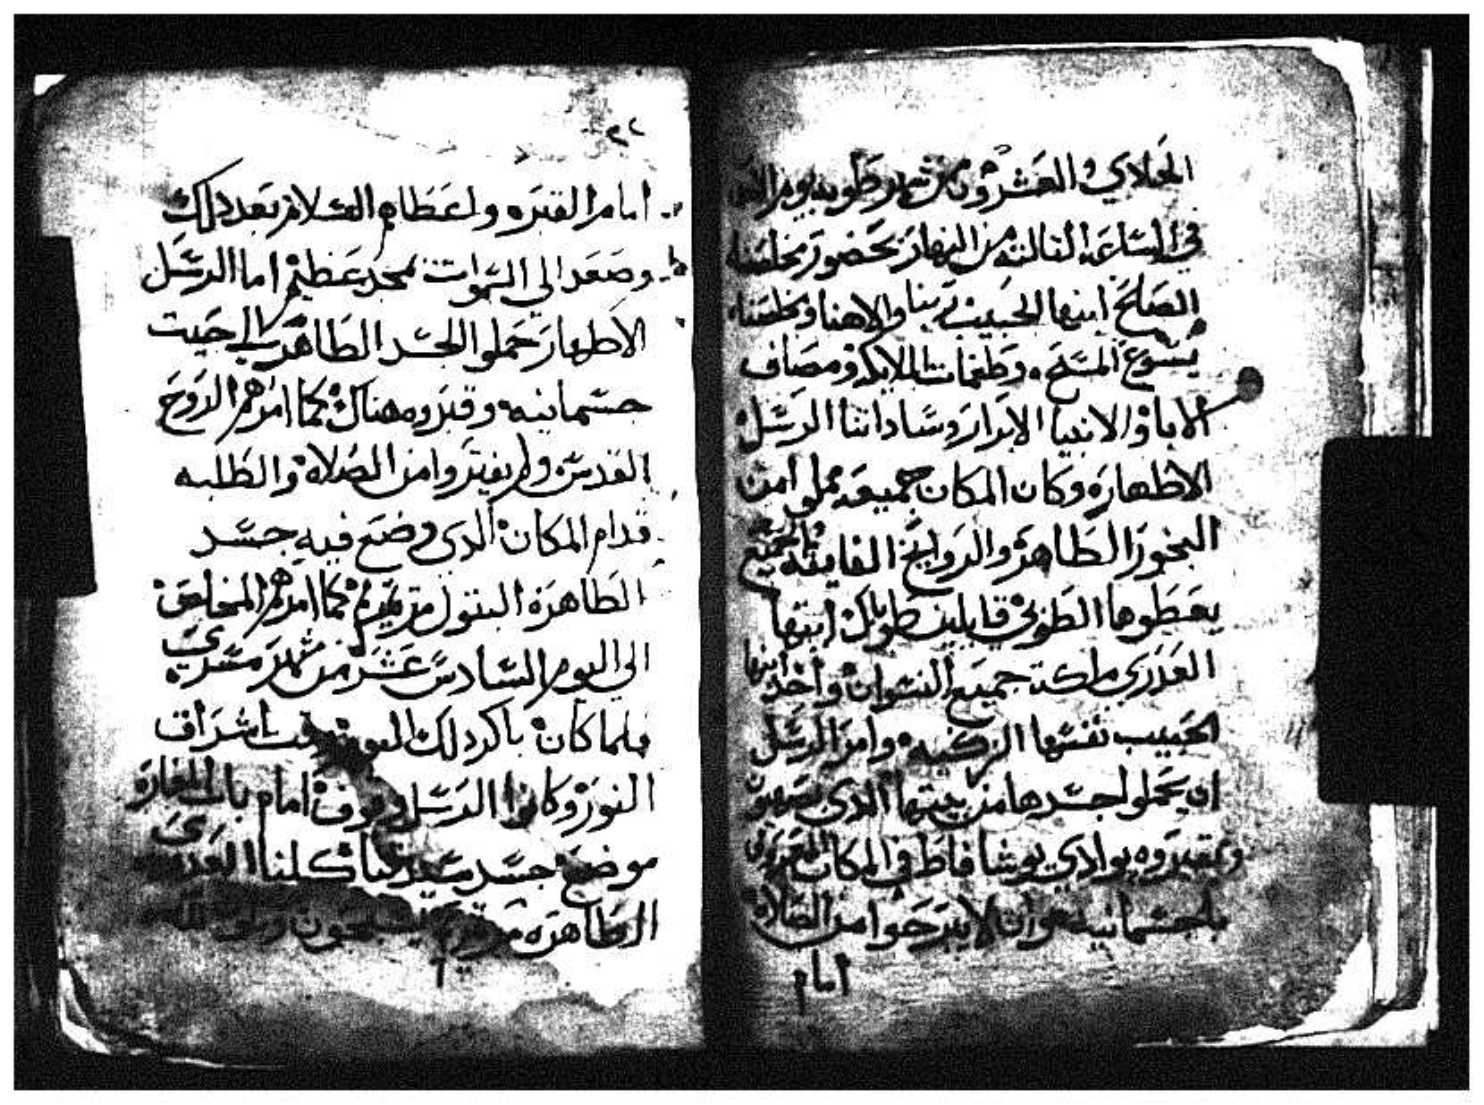 الحادي والعشرون من شهر طوبه يوم الاحد
في الساعه الثالثه من النهار بحضور مخلصنا
الصالح ابنها الحبيب ربنا والاهنا ومخلصنا
يسوع المسيح وطغمات الملايكه ومصاف
الابا والانبيا الابرار وساداتنا الرسل
الاطهاره وكان المكان جميعه مملوا من
البخور الطاهره والروايح الفايقه الجميع
يعطوها الطوبي قايلين طوباك ايتها
العذري ملكة جميع النسوان واخد ابنها
الحبيب نفسها الزكيه وامر الرسل
ان يحملوا جسدها من بيتها الذي
ويقبروه بوادي يوشافاط في المكان المعروف
بالجسمانيه وان لا يبرحوا من الصلاه
امام
٢٢
امام القبره واعطاهم السلام بعد ذلك
وصعد الي السموات بمجد عظيم اما الرسل
الاطهار حملوا الجسد الطاهر الي حيت
جسمانيه وقبروه هناك كما امرهم الروح
القدس ولم يفتروا من الصلاه والطلبه
قدام المكان الدي وضع فيه جسد
الطاهره البتول مريم كما امرهم المخلص
الي اليوم السادس عشر من شهر مسري
فلما كان باكر دلك اليوم وقت اشراق
النور وكانوا الرسل وقوف امام باب المغاره
موضع جسد سيدتنا كلنا العدري
الطاهره مريم يسبحون